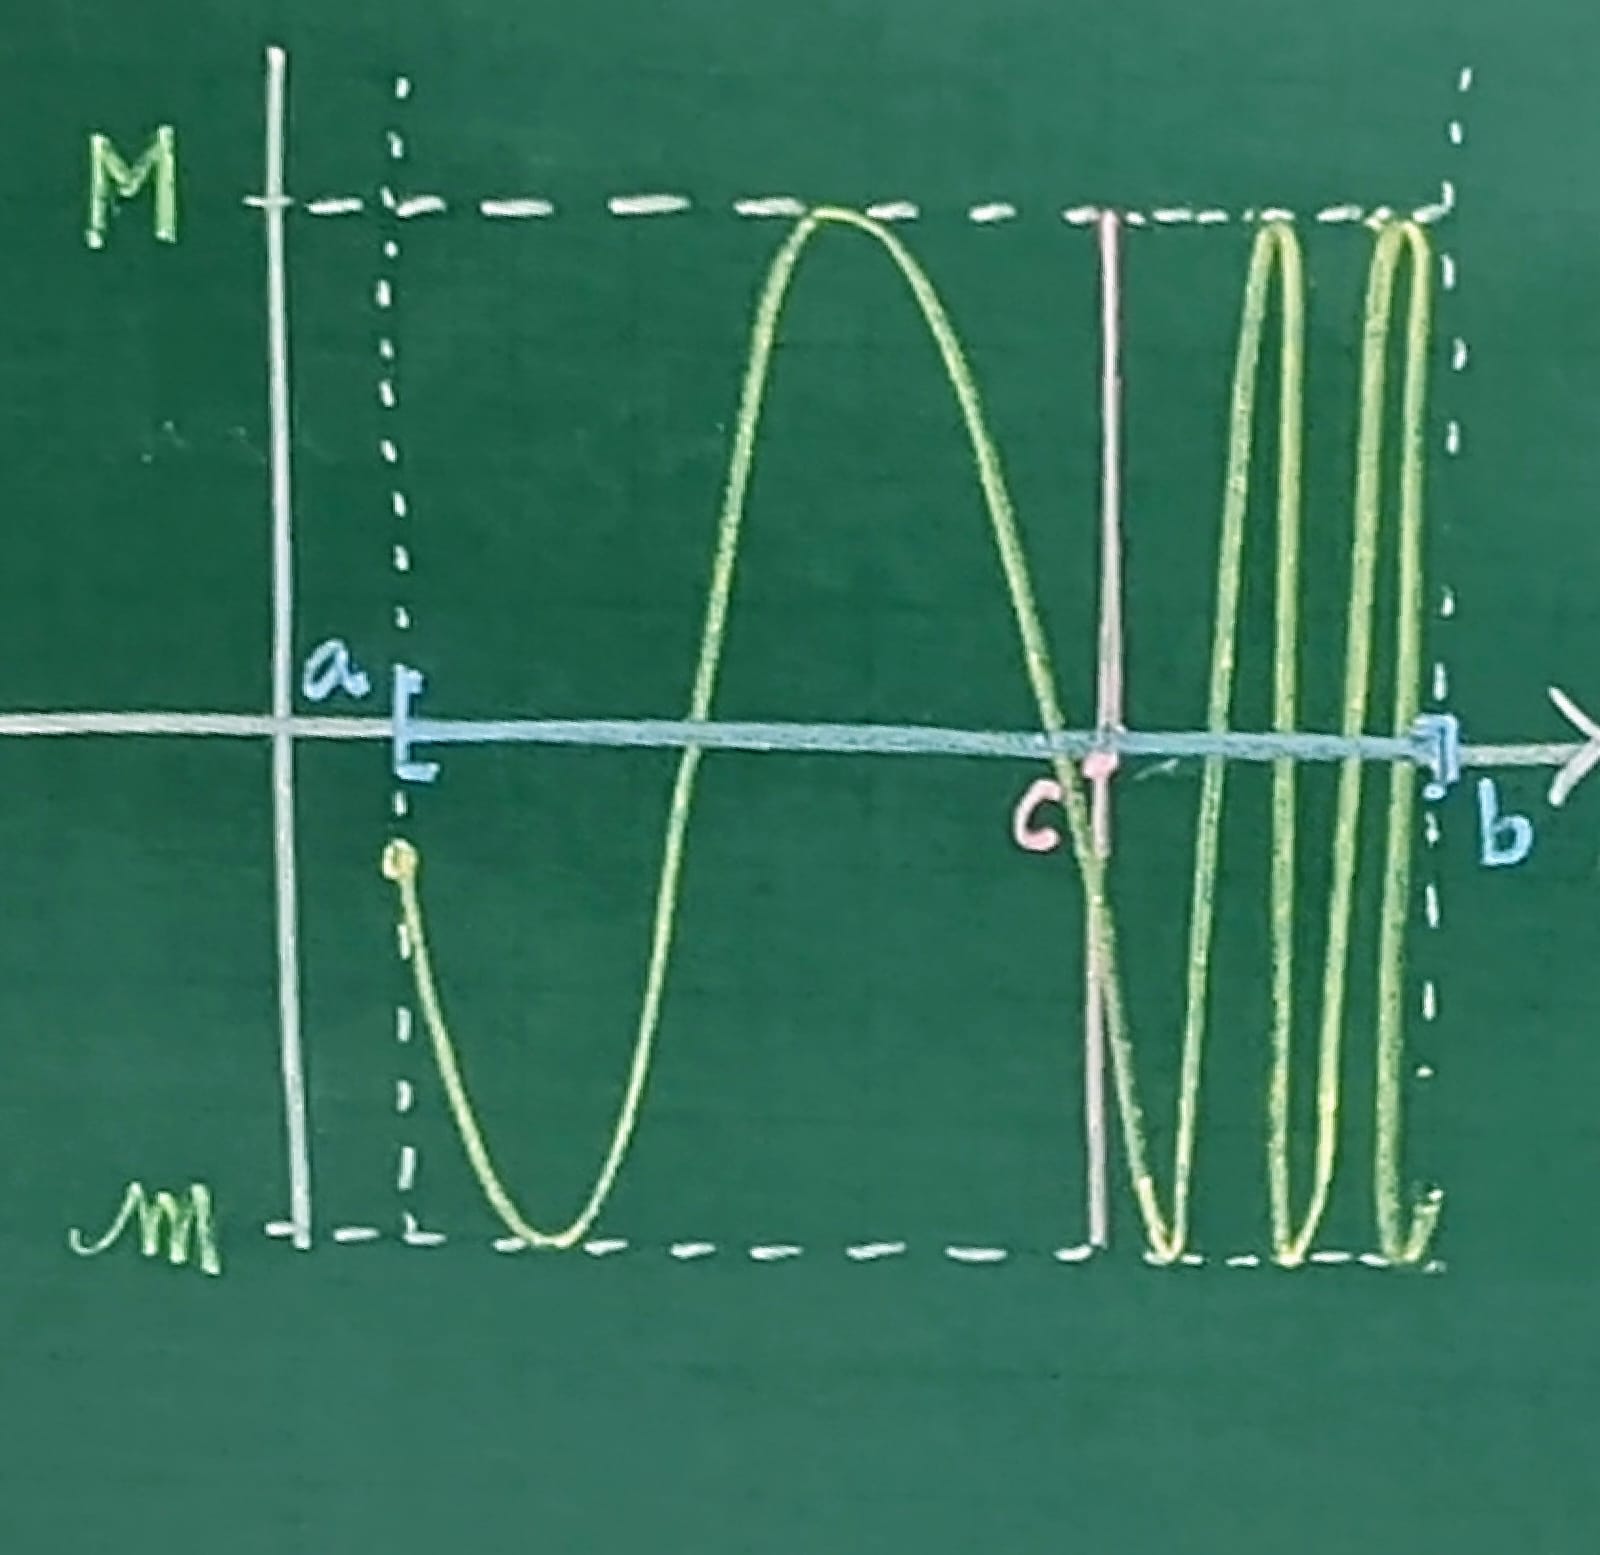 M
a [
c
] b
m